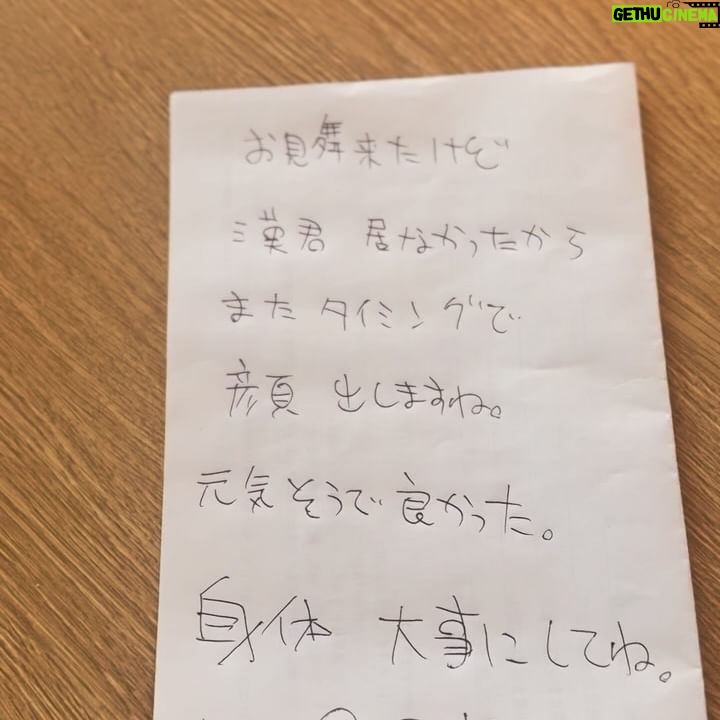 GETHUCINEMA
お見舞来たけど
漢君 居なかったから
またタイミングで
顔 出しますね。
元気そうで良かった。
身体 大事にしてね。